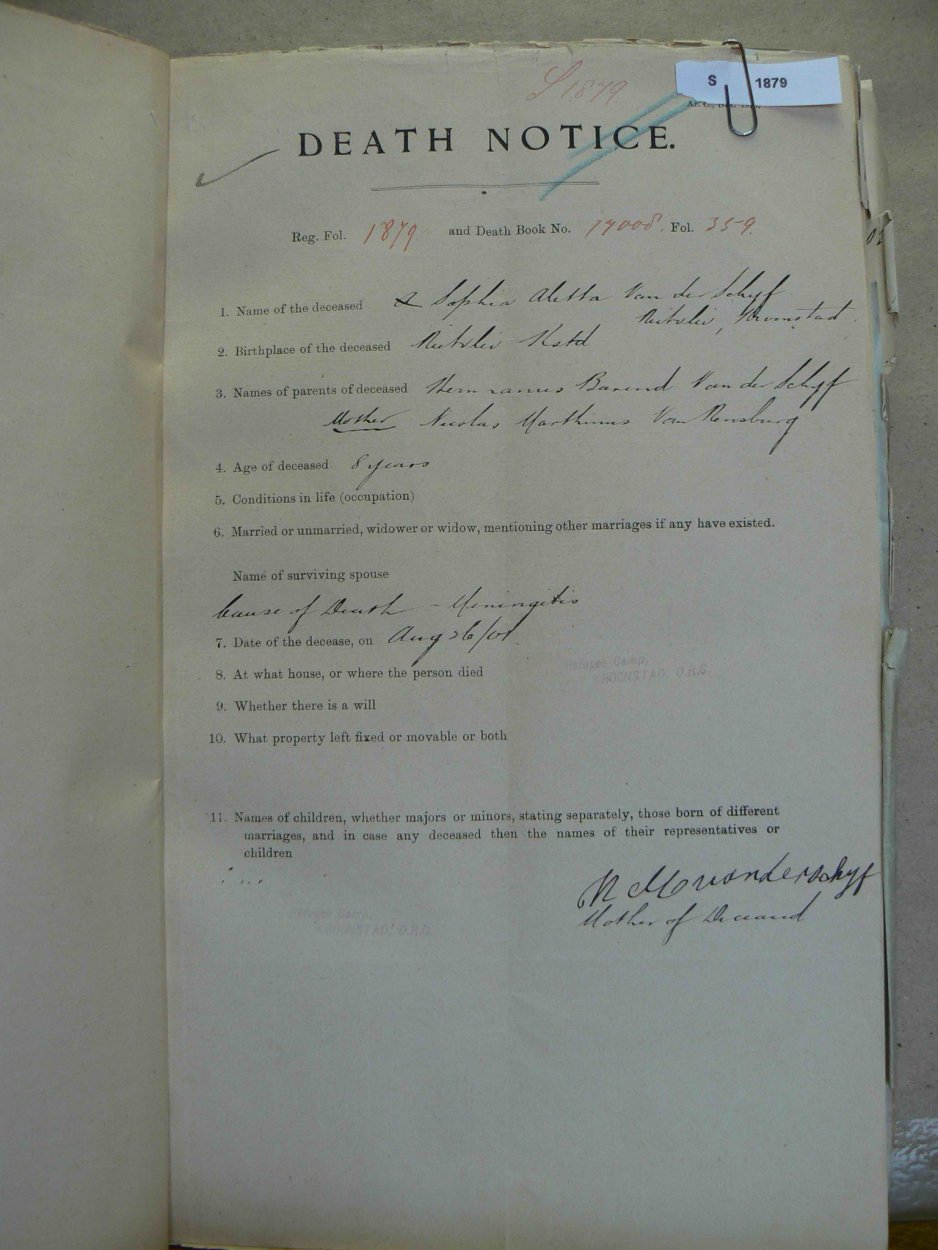 S 1879
S 1879
DEATH NOTICE.
Reg. Fol. 1879 and Death Book No. 17008. Fol. 359.
1. Name of the deceased Sophia Aletta Van der Schyf
Rietvlei, Kroonstad
2. Birthplace of the deceased Rietvlei Kstd
3. Names of parents of deceased Hermanus Barend Van der Schyf
Mother Nicolas Marthinus Van Rensburg
4. Age of deceased 8 years
5. Conditions in life (occupation)
6. Married or unmarried, widower or widow, mentioning other marriages if any have existed.
Name of surviving spouse
Cause of Death – Meningitis
7. Date of the decease, on Aug 26/01.
8. At what house, or where the person died
Refugee Camp,
KROONSTAD, O.R.C.
9. Whether there is a will
10. What property left fixed or movable or both
11. Names of children, whether majors or minors, stating separately, those born of different
marriages, and in case any deceased then the names of their representatives or
children
vanderschyf
Mother of Deceased
Refugee Camp,
KROONSTAD, O.R.C.